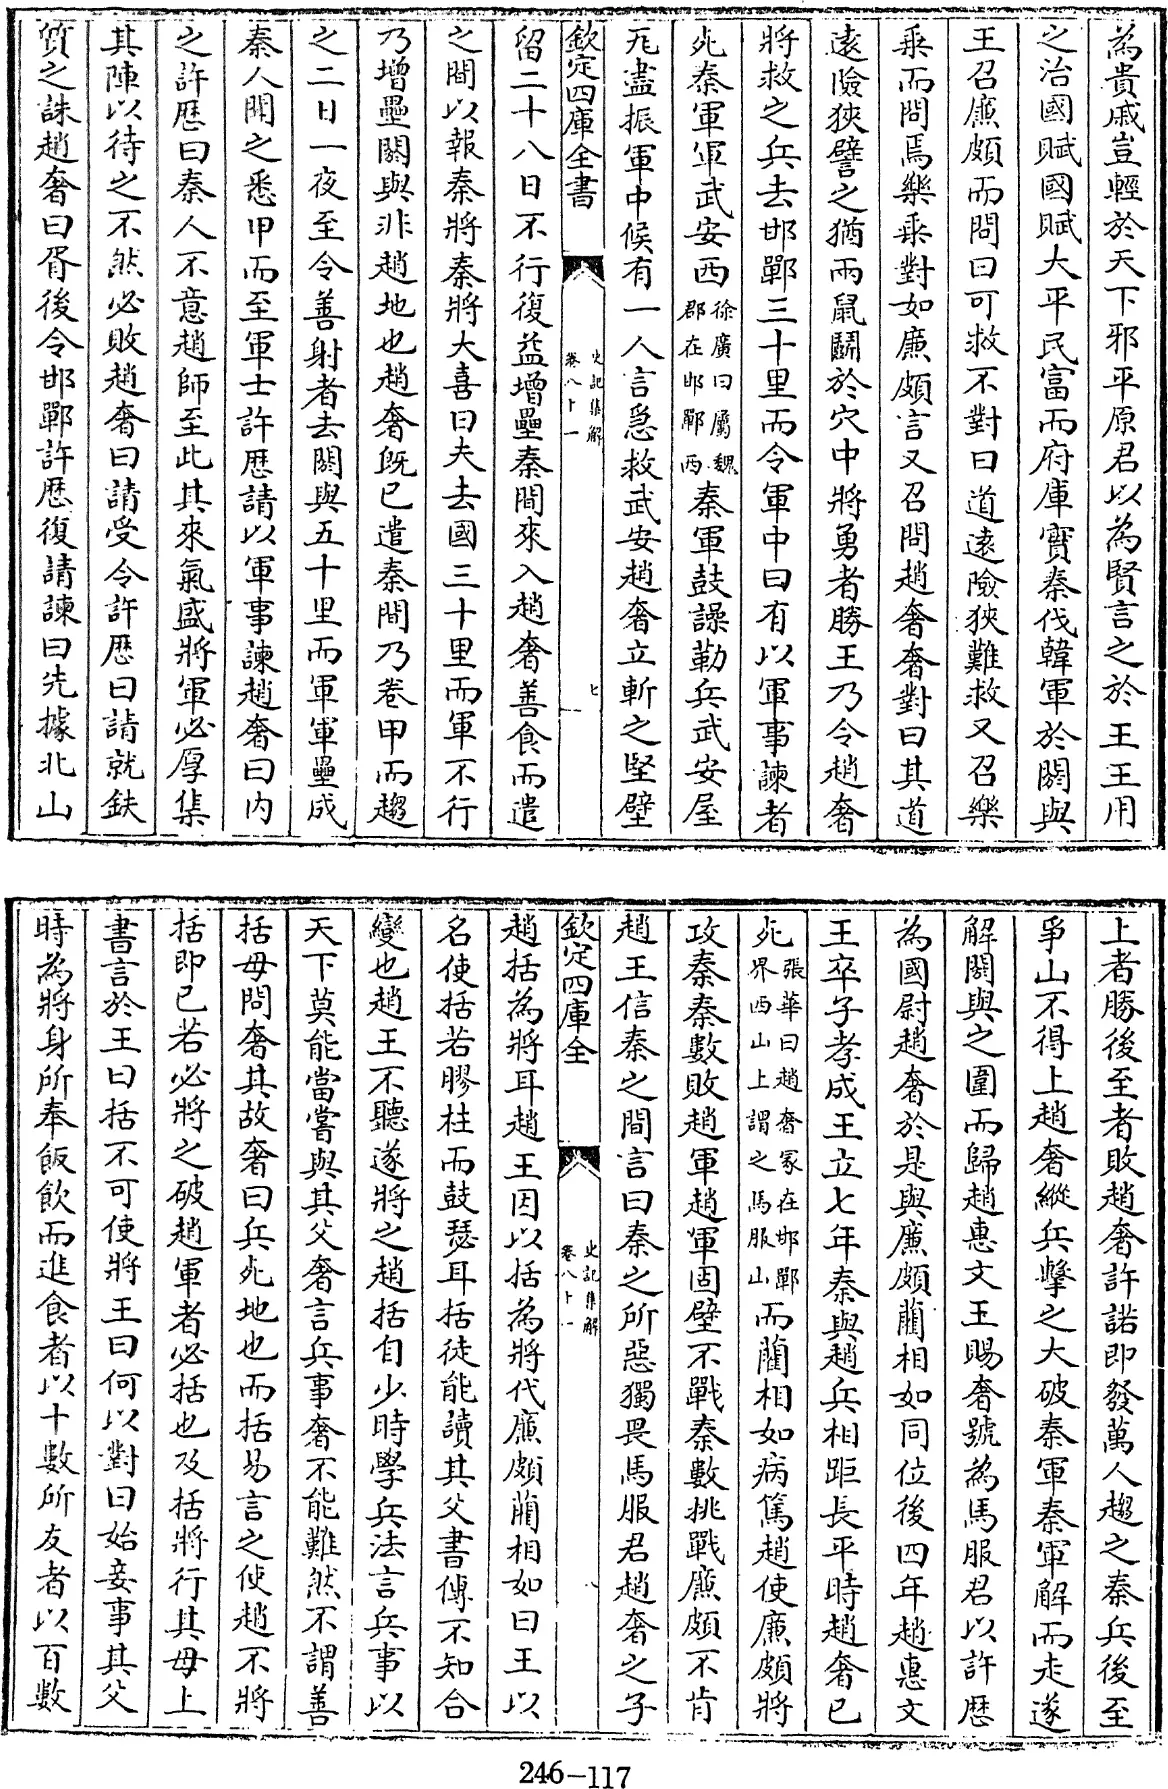 為貴戚豈輕於天下邪平原君以為賢言之於王王用
之治國賦國賦大平民富而府庫實秦伐韓軍於閼與
王召廉頗而問曰可救不對曰道遠險狹難救又召樂
乘而問焉樂乘對如廉頗言又召問趙奢奢對曰其道
遠險狹譬之猶兩鼠鬭於穴中將勇者勝王乃令趙奢
將救之兵去邯鄲三十里而令軍中曰有以軍事諫者
死秦軍軍武安西徐廣曰屬魏郡在邯鄲西秦軍鼓譟勒兵武安屋
瓦盡振軍中候有一人言急救武安趙奢立斬之堅壁
欽定四庫全書 史記集解 卷八十一 七
留二十八日不行復益增壘秦間來入趙奢善食而遣
之間以報秦將秦將大喜曰夫去國三十里而軍不行
乃增壘閼與非趙地也趙奢既已遣秦間乃卷甲而趨
之二日一夜至令善射者去閼與五十里而軍軍壘成
秦人聞之悉甲而至軍士許歷請以軍事諫趙奢曰內
之許歷曰秦人不意趙師至此其來氣盛將軍必厚集
其陣以待之不然必敗趙奢曰請受令許歷曰請就鈇
質之誅趙奢曰胥後令邯鄲許歷復請諫曰先據北山
上者勝後至者敗趙奢許諾即發萬人趨之秦兵後至
爭山不得上趙奢縱兵擊之大破秦軍秦軍解而走遂
解閼與之圍而歸趙惠文王賜奢號為馬服君以許歷
為國尉趙奢於是與廉頗藺相如同位後四年趙惠文
王卒子孝成王立七年秦與趙兵相距長平時趙奢已
死張華曰趙奢冢在邯鄲界西山上謂之馬服山而藺相如病篤趙使廉頗將
攻秦秦數敗趙軍趙軍固壁不戰秦數挑戰廉頗不肯
趙王信秦之間言曰秦之所惡獨畏馬服君趙奢之子
欽定四庫全 史記集解 卷八十一 八
趙括為將耳趙王因以括為將代廉頗藺相如曰王以
名使括若膠柱而鼓瑟耳括徒能讀其父書傳不知合
變也趙王不聽遂將之趙括自少時學兵法言兵事以
天下莫能當嘗與其父奢言兵事奢不能難然不謂善
括母問奢其故奢曰兵死地也而括易言之使趙不將
括即已若必將之破趙軍者必括也及括將行其母上
書言於王曰括不可使將王曰何以對曰始妾事其父
時為將身所奉飯飲而進食者以十數所友者以百數
246-117